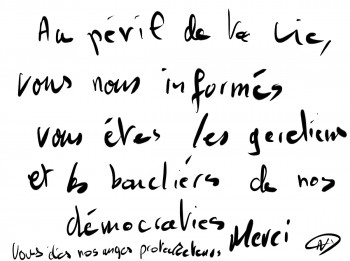 Au péril de la vie,
vous nous informés
vous êtes les gardiens
et les boucliérs de nos
démocraties
Merci
Vous êtes nos anges protecteurs,